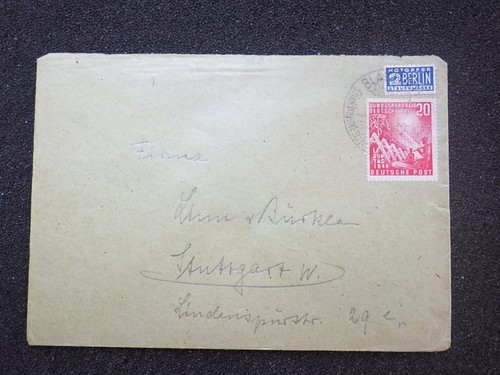 NOTOPFER
2 BERLIN
STEUERMARKE
BLA
20
BUNDESREPUBLIK
DEUTSCHLAND
1. BUNDES
TAG 1949
DEUTSCHE POST
Firma
Bürklen
Stuttgart W.
Lindenspürstr. 29 c.